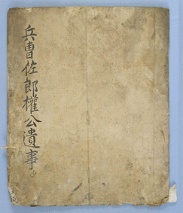 兵曹佐郎權公遺事